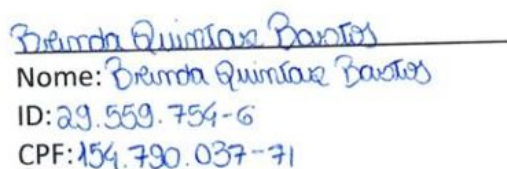 Brenda Quintans Bastos
Nome: Brenda Quintans Bastos
ID: 29.559.754-6
CPF: 154.790.037-71